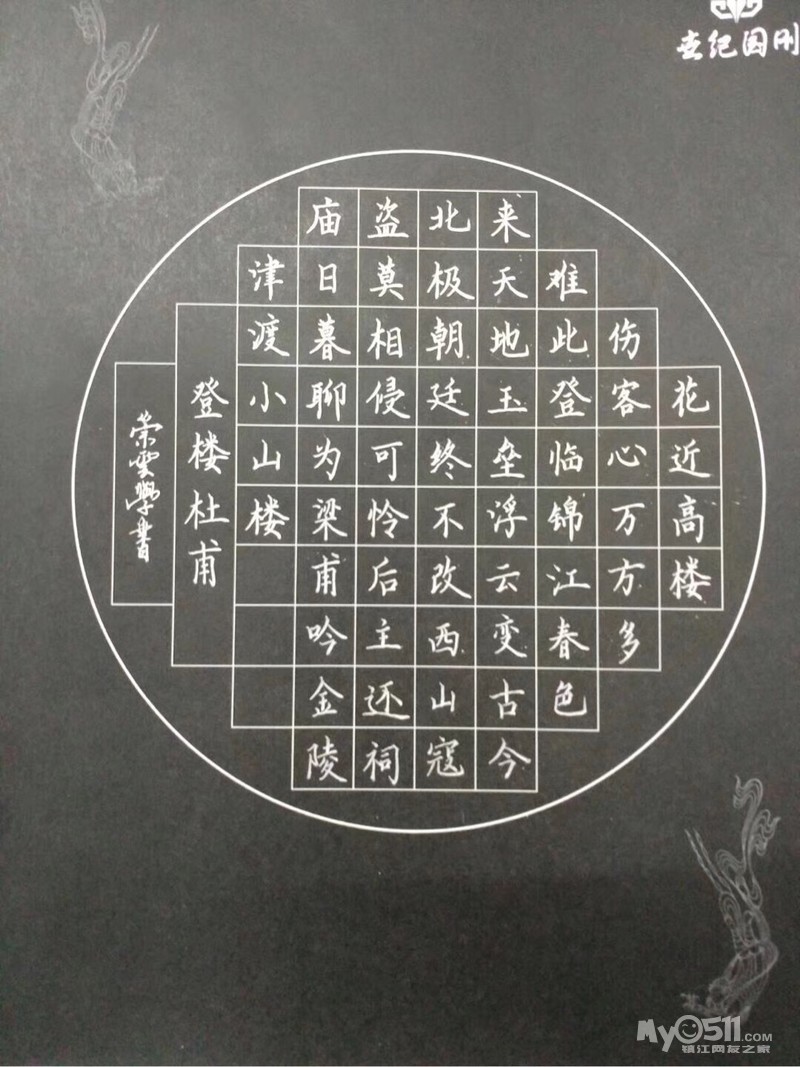 世纪国刚
花近高楼
伤客心万方多
难此登临锦江春色
来天地玉垒浮云变古今
北极朝廷终不改西山寇
盗莫相侵可怜后主还祠
庙日暮聊为梁甫吟金陵
津渡小山楼
登楼杜甫
荣雲學書
My0511.COM
镇江网友之家